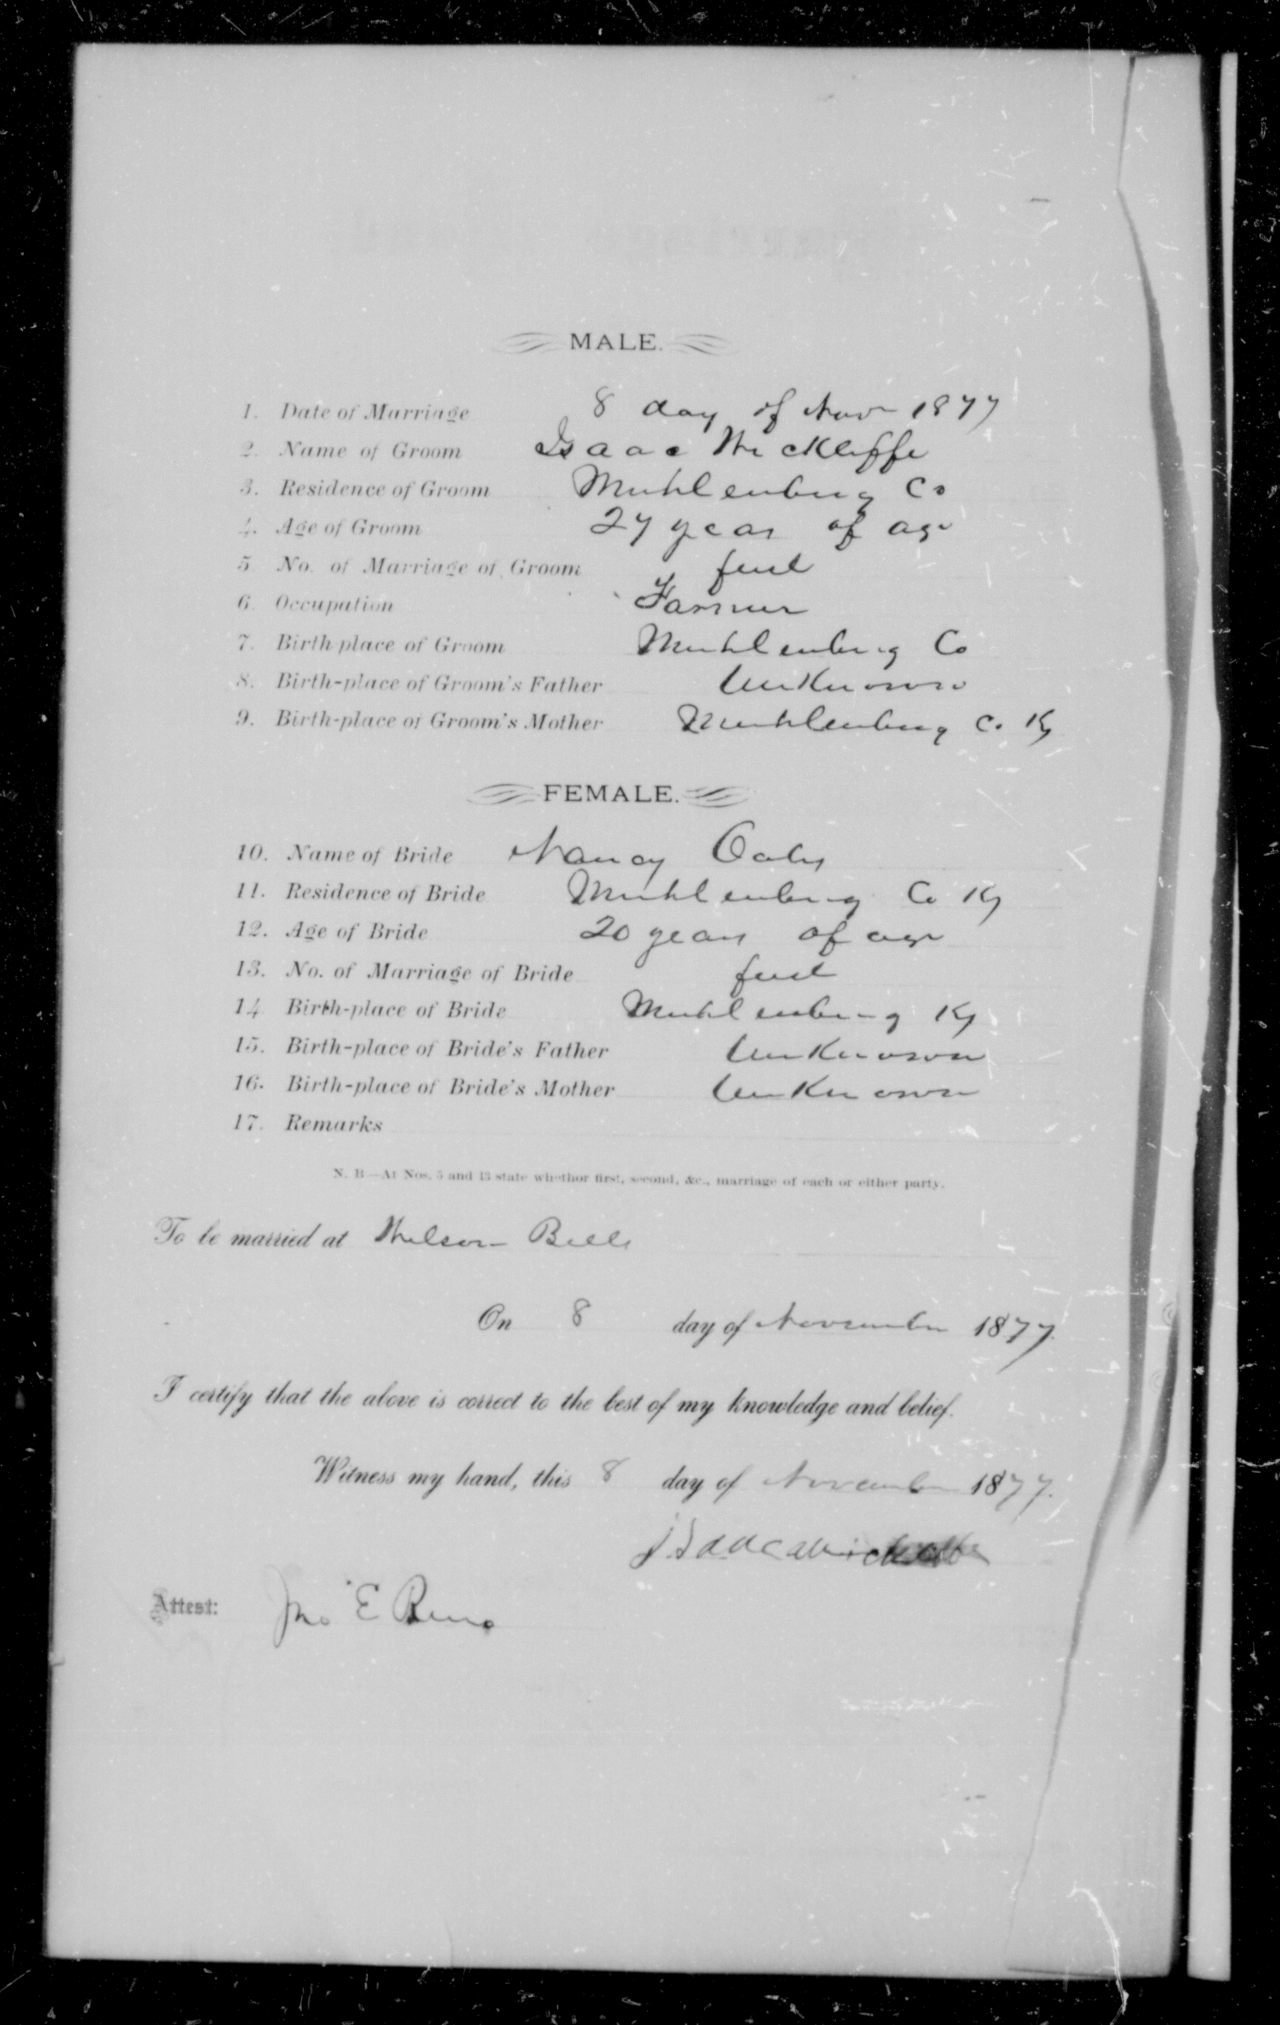 MALE.
1. Date of Marriage 8 day of Nov 1877
2. Name of Groom Isaac Wickliffe
3. Residence of Groom Muhlenburg Co
4. Age of Groom 27 years of age
5. No. of Marriage of Groom first
6. Occupation Farmer
7. Birth-place of Groom Muhlenburg Co
8. Birth-place of Groom's Father Unknown
9. Birth-place of Groom's Mother Muhlenburg Co Ky
FEMALE.
10. Name of Bride Nancy
11. Residence of Bride Muhlenburg Co Ky
12. Age of Bride 20 years of age
13. No. of Marriage of Bride first
14. Birth-place of Bride Muhlenburg Ky
15. Birth-place of Bride's Father Unknown
16. Birth-place of Bride's Mother Unknown
17. Remarks
N. B.—At Nos. 5 and 13 state whether first, second, &c., marriage of each or either party.
To be married at Wilson Bells
On 8 day of November 1877.
I certify that the above is correct to the best of my knowledge and belief.
Witness my hand, this 8 day of November 1877.
Isaac
Attest: Jno E Reno